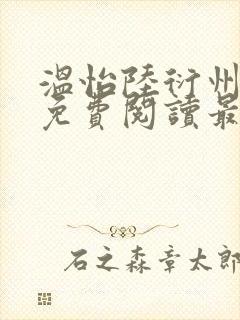 溫怡陸衍州
免費閱讀最
石之森章太郎